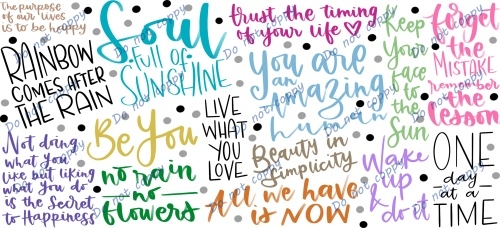 The purpose
of our lives
is to be happy
RAINBOW
COMES AFTER
THE RAIN
Not doing
what you
like but liking
what you do
is the secret
to Happiness
Soul
full of
SUNSHINE
Be You
no rain
no
flowers
LIVE
WHAT
YOU
LOVE
trust the timing
of your life
You are
an
amazing
human
Beauty in
simplicity
All we have
is NOW
Keep
Your
face to
the
Sun
Wake
up
& do it
forget
the
MISTAKE
remember
the
lesson
ONE
day
at a
TIME
Do not copy